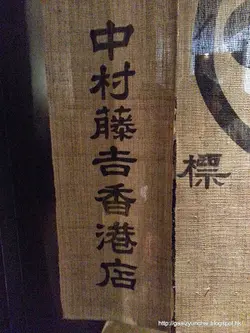 中村藤吉香港店
標
http://gseizyunone.blogspot.hk/